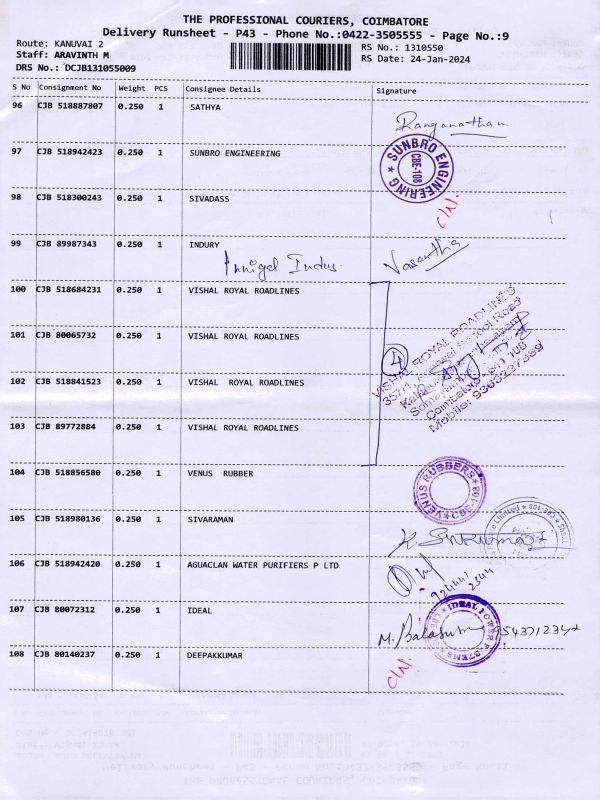 THE PROFESSIONAL COURIERS, COIMBATORE
Delivery Runsheet - P43 - Phone No.:0422-3505555 - Page No.:9
Route: KANUVAI 2
RS No.: 1310550
Staff: ARAVINTH M
RS Date: 24-Jan-2024
DRS No.: DCJB131055009
S No Consignment No Weight PCS Consignee Details Signature
96 CJB 518887807 0.250 1 SATHYA
Ranganathan
97 CJB 518942423 0.250 1 SUNBRO ENGINEERING
SUNBRO ENGINEERING
CBE-108
98 CJB 518300243 0.250 1 SIVADASS
C/N.
99 CJB 89987343 0.250 1 INDURY
Vasantha
Indus.
100 CJB 518684231 0.250 1 VISHAL ROYAL ROADLINES
101 CJB 80065732 0.250 1 VISHAL ROYAL ROADLINES
4
VISHAL ROYAL ROADLINES
102 CJB 518841523 0.250 1 VISHAL ROYAL ROADLINES
103 CJB 89772884 0.250 1 VISHAL ROYAL ROADLINES
104 CJB 518856580 0.250 1 VENUS RUBBER
VENUS RUBBERS
105 CJB 518980136 0.250 1 SIVARAMAN
106 CJB 518942420 0.250 1 AGUACLAN WATER PURIFIERS P LTD
107 CJB 80072312 0.250 1 IDEAL
108 CJB 80140237 0.250 1 DEEPAKKUMAR
C/N.